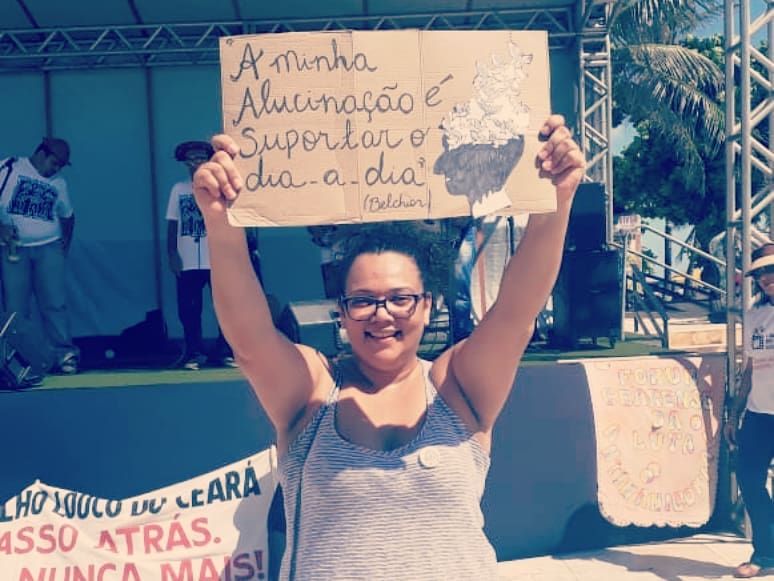 "A minha
Alucinação é
Suportar o
dia-a-dia"
(Belchior)
LHO LOUCO DO CEARÁ
ASSO ATRÁS.
NUNCA MAIS!
FORUM
CEARENSE
DA
LUTA
ANTIMANICOMIAL